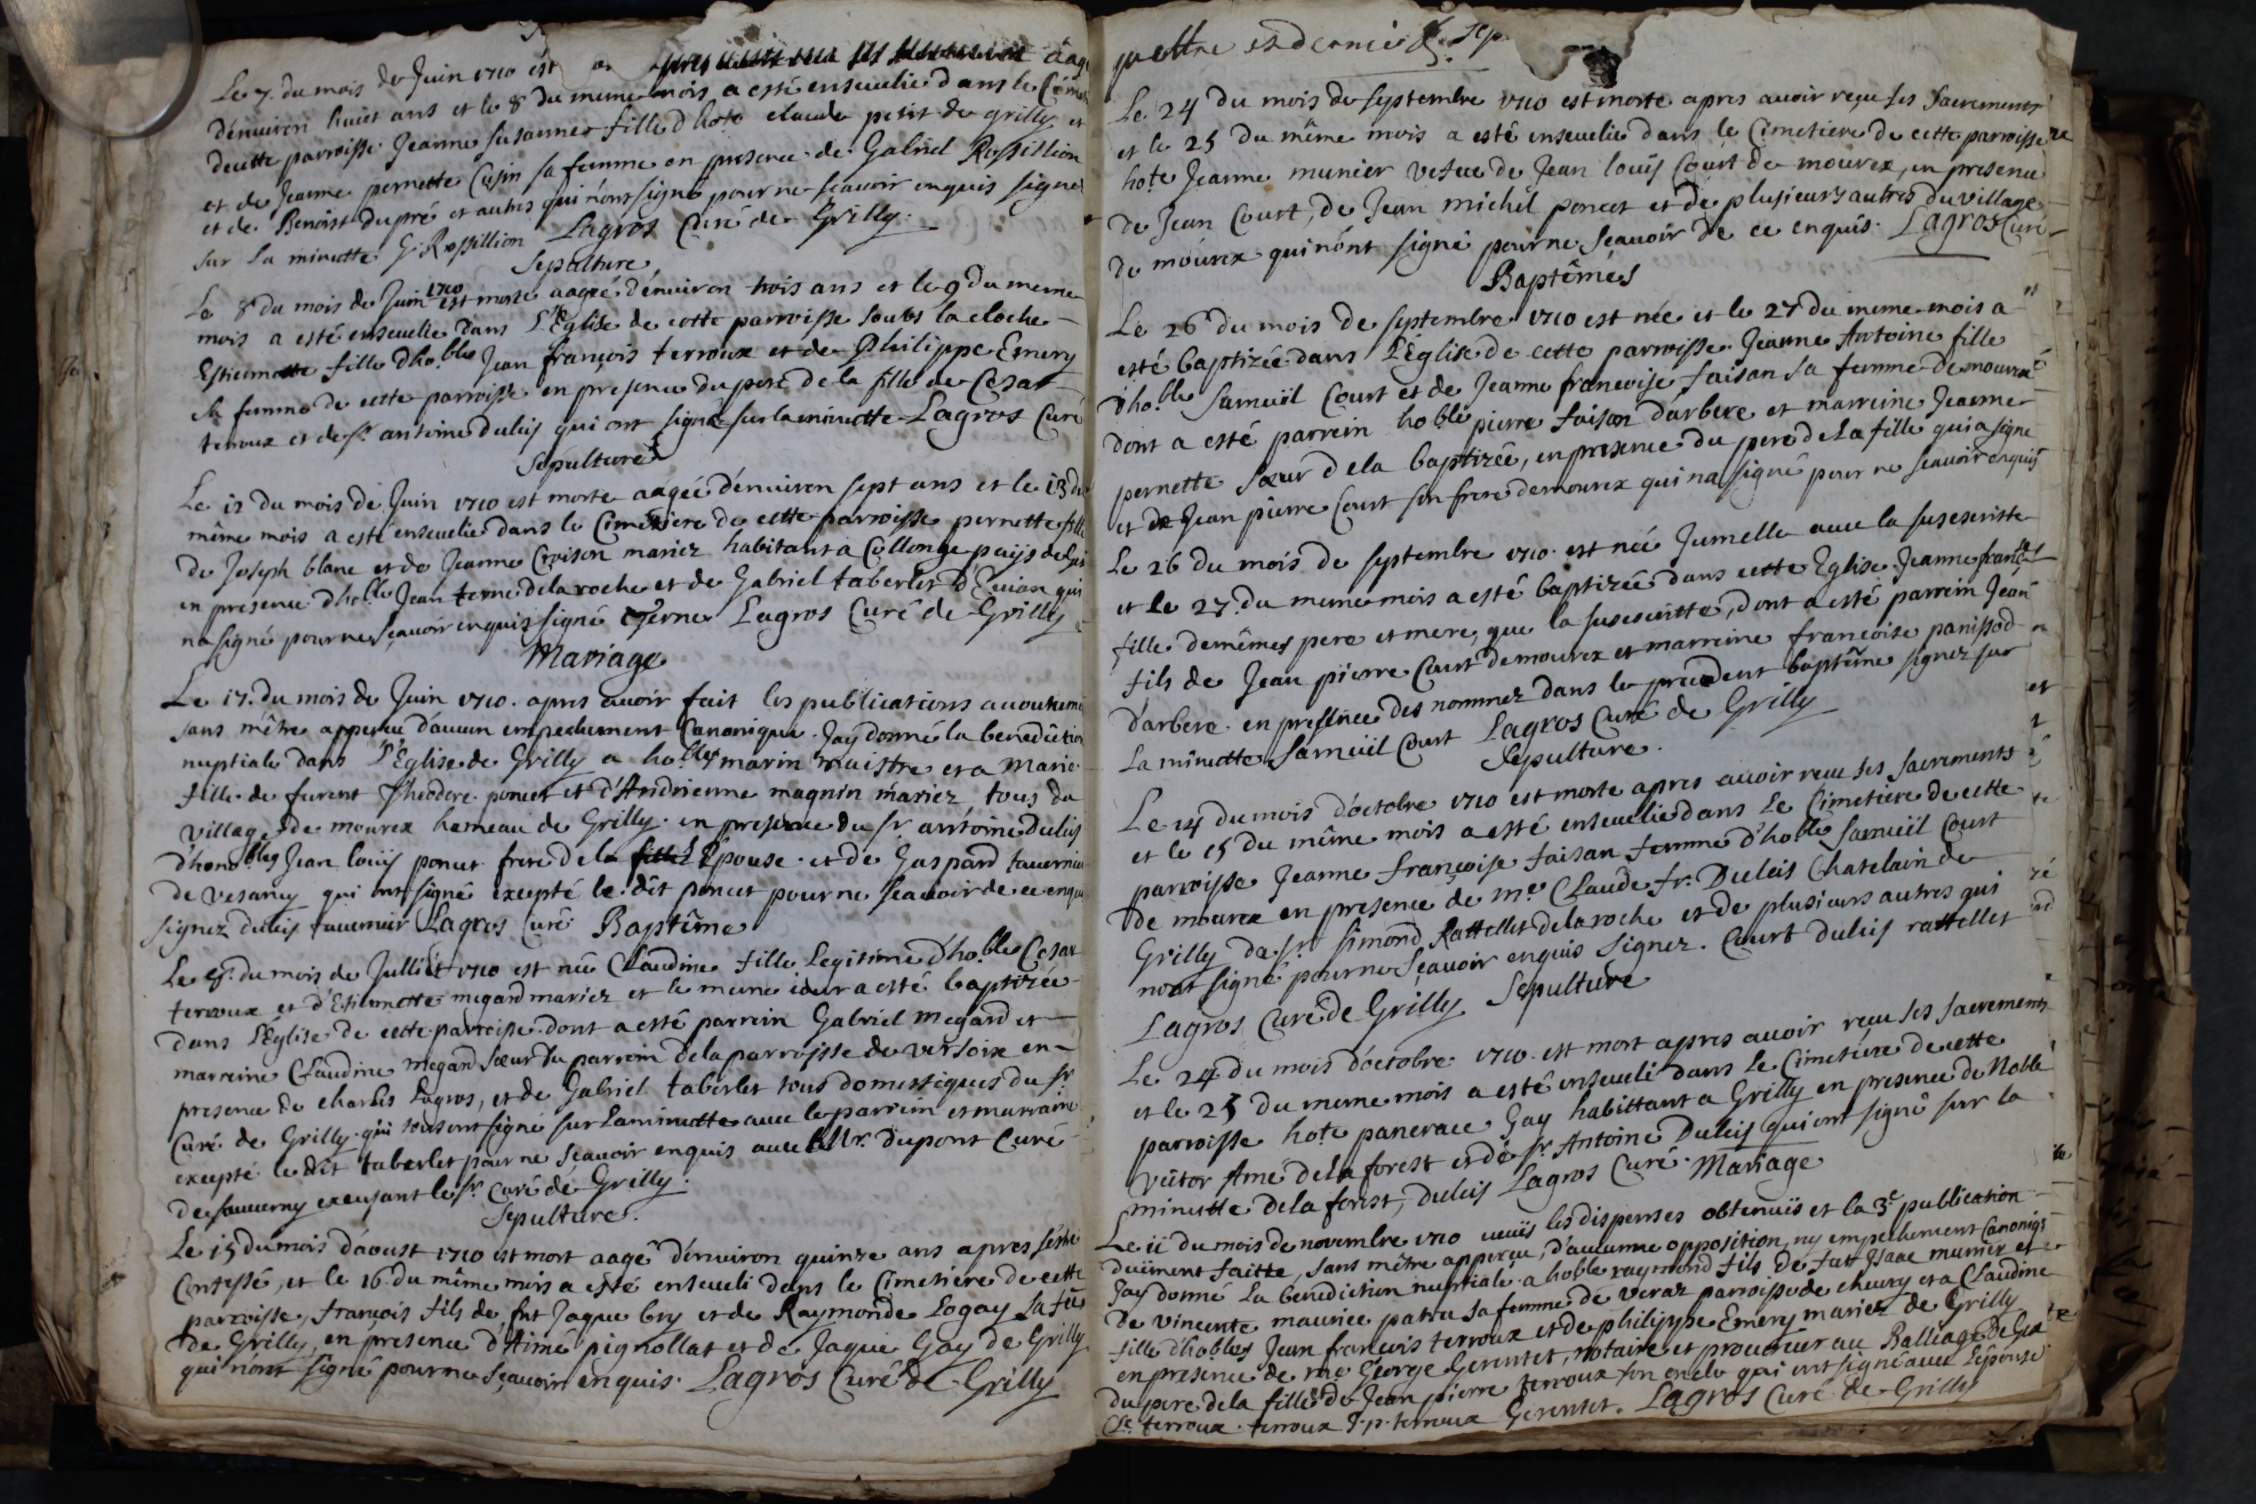 Le 7. du mois de Juin 1710 est aagée
d'enuiron huict ans et le 8 du meme mois a esté enseuelie dans le Cimet
de cette parroisse Jeanne Susanne fille d'hote claude petit de grilly et
et de Jeanne pernette Cusin sa femme en presence de Gabriel Rossillion
et de Benoist dupré et autres qui n'ont signé pour ne scauoir enquis signé
sur la minutte G. Rossillion Lagros Curé de Grilly.
Sepulture
Le 8 du mois de Juin 1710 est morte aagée d'enuiron trois ans et le 9 du meme
mois a esté enseuelie dans l'Eglise de cette parroisse soubs la cloche
Estiennette fille d'ho.ble Jean françois terroux et de Philippe Emery
sa femme de cette parroisse en presence du pere de la fille de Cesar
terroux et de sr. antoine duleis qui ont signé sur la minutte Lagros Curé
Sepulture
Le 12 du mois de Juin 1710 est morte aagée d'enuiron sept ans et le 13 du
même mois a esté enseuelie dans le Cimetiere de cette parroisse pernette fille
de Joseph blanc et de Jeanne Croison mariez habitant a Collonge paijs de
en presence d'ho.ble Jean terne de la roche et de Gabriel taberlet d'Euian qui
n'a signé pour ne sçauoir enquis signé terne Lagros Curé de Grilly
Mariage
Le 17. du mois de Juin 1710. apres auoir fait les publications
sans m'être apperçu d'aucun empechement Canonique. J'ay donné la benediction
nuptiale dans l'Eglise de Grilly a ho.bles marin maistre et a Marie
fille de furent Theodore poncet et d'Andrienne magnin mariez, tous du
village de mourex hameau de Grilly. en presence du sr antoine duleis
d'hono.bles Jean loüis poncet frere de la fille Epouse. et de Gaspard tauernier
de Vesancy qui ont signé excepté le dit poncet pour ne scauoir de ce enquis
signez duleis tauernier Lagros Curé Baptême
Le 4. du mois de Julliet 1710 est née Claudine fille Legitime d'ho.ble Cesar
terroux et d'Estiennette megard mariez et le meme iour a esté baptizée
dans l'Eglise de cette parroisse dont a esté parrein Gabriel megard et
marreine Claudine megard sœur du parrein de la parroisse de versoix en
presence de charles Lagros, et de Gabriel taberlet tous domestiques du sr
Curé de Grilly qui tous ont signé sur la minutte auec le parrein et marraine
excepté le dit taberlet pour ne sçauoir enquis auec Mr. dupont Curé
de sauuerny excusant le sr. Curé de Grilly.
Sepulture.
Le 15 du mois d'aoust 1710 est mort aagé d'enuiron quinze ans apres s'estre
Confessé, et le 16 du même mois a esté enseueli dans le Cimetiere de cette
parroisse, françois fils de fut Jaque bry et de Raymonde Logay sa fe
de Grilly, en presence d'Aimé pignollat et de Jaque Gay de Grilly
qui n'ont signé pour ne sçauoir enquis. Lagros Curé de Grilly
Le 24 du mois de septembre 1710 est morte apres auoir reçu ses Sacrements
et le 25 du même mois a esté enseuelie dans le Cimetiere de cette parroisse
ho.te Jeanne munier vefue de Jean louis Court de mourex, en presence
de Jean Court, de Jean michel poncet et de plusieurs autres du village
de mourex qui n'ont signé pour ne sçauoir de ce enquis. Lagros Curé
Baptêmes
Le 26 du mois de septembre 1710 est née et le 27 du meme mois a
esté baptizée dans l'Eglise de cette parroisse Jeanne Antoine fille
d'ho.ble Samuïl Court et de Jeanne francoise faisan sa femme de mourex
dont a esté parrein ho.ble pierre faison d'arbere et marreine Jeanne
pernette sœur de la baptizée, en presence du pere de la fille qui a signe
et de Jean pierre Court son frere de mourex qui n'a signé pour ne sçauoir enquis
Le 26 du mois de septembre 1710. est née Jumelle auec la susescritte
et le 27. du meme mois a esté baptizée dans cette Eglise Jeanne franc.se
fille de mêmes pere et mere, que la susescritte, dont a esté parrein Jean
fils de Jean pierre Court de mourex et marreine françoise panissod
d'arbere. en presence des nommez dans le precedent baptême signez sur
La minutte Samuïl Court Lagros Curé de Grilly
Sepulture.
Le 14 du mois d'octobre 1710 est morte apres auoir reçu ses sacrements
et le 15 du même mois a esté enseuelie dans Le Cimetiere de cette
parroisse Jeanne françoise faisan femme d'ho.ble Samuïl Court
de mourex en presence de me. Claude fr. Duleis Chatelain de
Grilly de sr. simond Rattellet de la roche et de plusieurs autres qui
n'ont signé pour ne sçauoir enquis signez. Court duleis rattellet
Lagros Curé de Grilly Sepulture
Le 24 du mois d'octobre 1710. est mort apres auoir reçu ses sacrements
et le 25 du meme mois a esté enseueli dans Le Cimetiere de cette
parroisse ho.te pancrace Gay habittant a Grilly en presence de Noble
victor Amé de la forest et de sr. Antoine Duleis qui ont signé sur la
minutte de la forest, duleis Lagros Curé. Mariage
Le 11 du mois de novembre 1710 ueuës les dispenses obtenuës et la 3e publication
duëment faitte, sans m'être apperçu, d'aucune opposition, ny empechement Canoniq
J'ay donné La benediction nuptiale a ho.ble raymond fils de fut Isaac munier et
de vincente maurice patru sa femme de veraz parroisse de cheury et a Claudine
fille d'ho.bles Jean francois terroux et de philippe Emery mariez de Grilly
en presence de me George Gerentet, notaire et procureur au Balliage de Gex
du pere de la fille de Jean pierre terroux son oncle qui ont signé auec l'épouse
Cl. terroux. terroux J. p. terroux Gerentet. Lagros Curé de Grilly